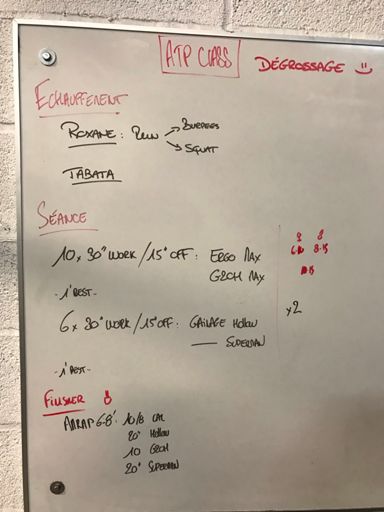 ATP CLASS
DÉGROSSAGE
ECHAUFFEMENT
ROXANE : RUN → BURPEES
→ SQUAT
TABATA
SÉANCE
10 x 30" WORK / 15" OFF : ERGO MAX
G2OH MAX
- 1' REST -
6 x 30" WORK / 15" OFF : GAINAGE HOLLOW
SUPERMAN
x2
- 1' REST -
FINISHER
AMRAP 6-8' : 10/8 CAL
20" HOLLOW
10 G2OH
20" SUPERMAN